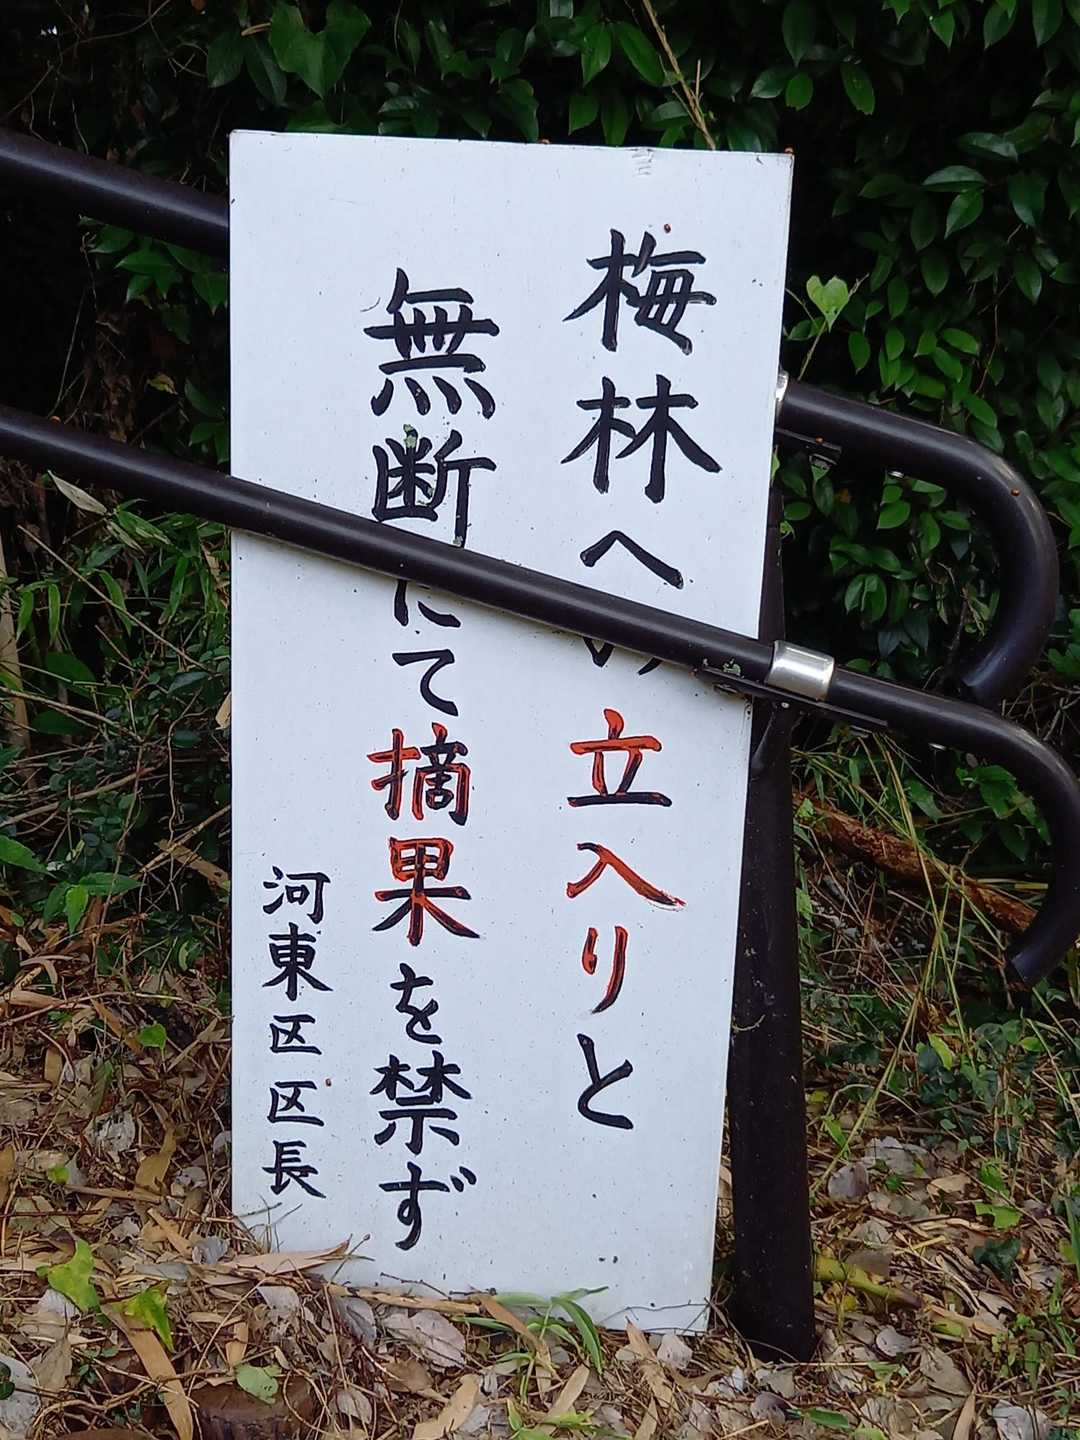 梅林への立入りと
無断にて摘果を禁ず
河東区区長